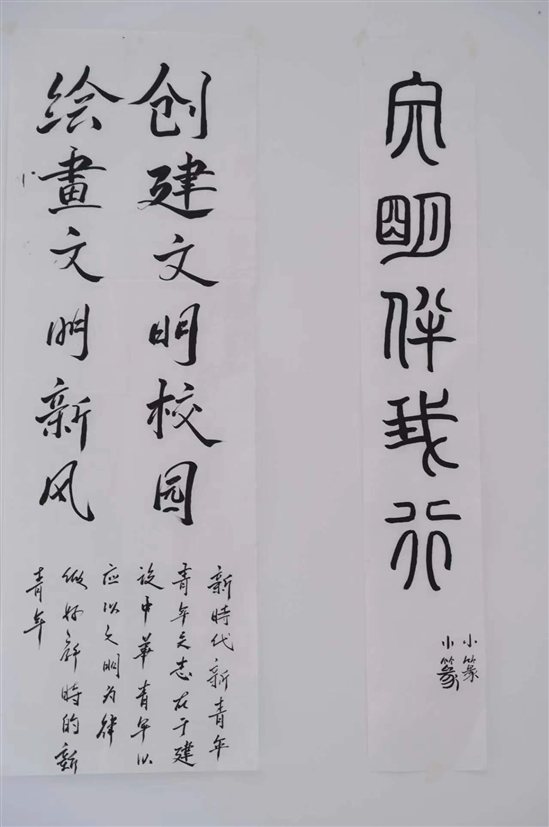 文明伴我行
小篆
小篆
创建文明校园
绘畫文明新风
新時代新青年
青年之志在于建
设中華青年以
应以文明为律
做好新時的新
青年